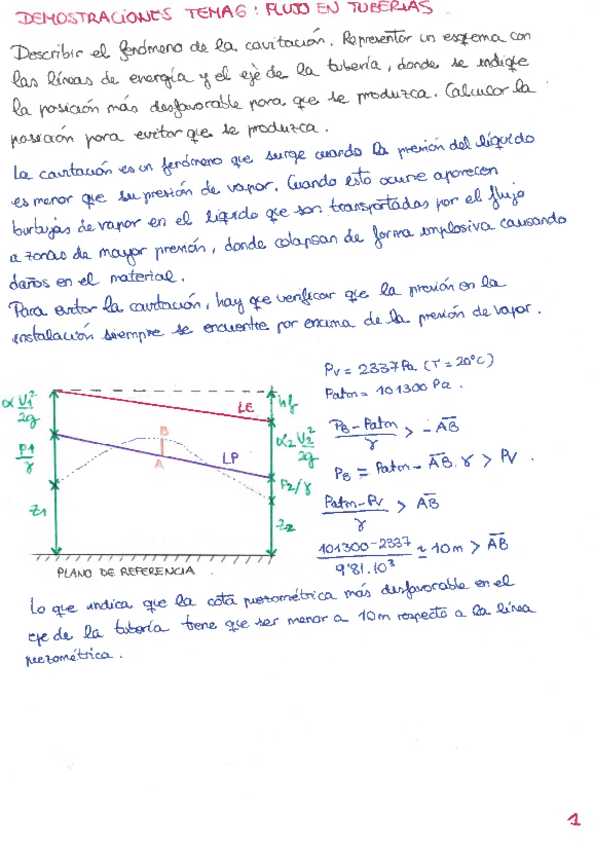 DEMOSTRACIONES TEMA 6: FLUJO EN TUBERIAS.
Describir el fenómeno de la cavitación. Representar un esquema con
las líneas de energía y el eje de la tubería, donde se indique
la posición más desfavorable para que se produzca. Calcular la
posición para evitar que se produzca.
La cavitación es un fenómeno que surge cuando la presión del líquido
es menor que su presión de vapor. Cuando esto ocurre aparecen
burbujas de vapor en el líquido que son transportadas por el flujo
a zonas de mayor presión, donde colapsan de forma implosiva causando
daños en el material.
Para evitar la cavitación, hay que verificar que la presión en la
instalación siempre se encuentre por encima de la presión de vapor.
α U1²/2g
P1/γ
Z1
B
A
LE
LP
hf
α2 U2²/2g
P2/γ
Z2
PLANO DE REFERENCIA.
Pv = 2337 Pa (T = 20ºC)
Patm = 101300 Pa.
PB - Patm / γ > - AB
PB = Patm - AB · γ > Pv.
Patm - Pv / γ > AB
101300 - 2337 / 9'81·10³ ≈ 10m > AB
Lo que indica que la cota piezométrica más desfavorable en el
eje de la tubería tiene que ser menor a 10m respecto a la línea
piezométrica.
1